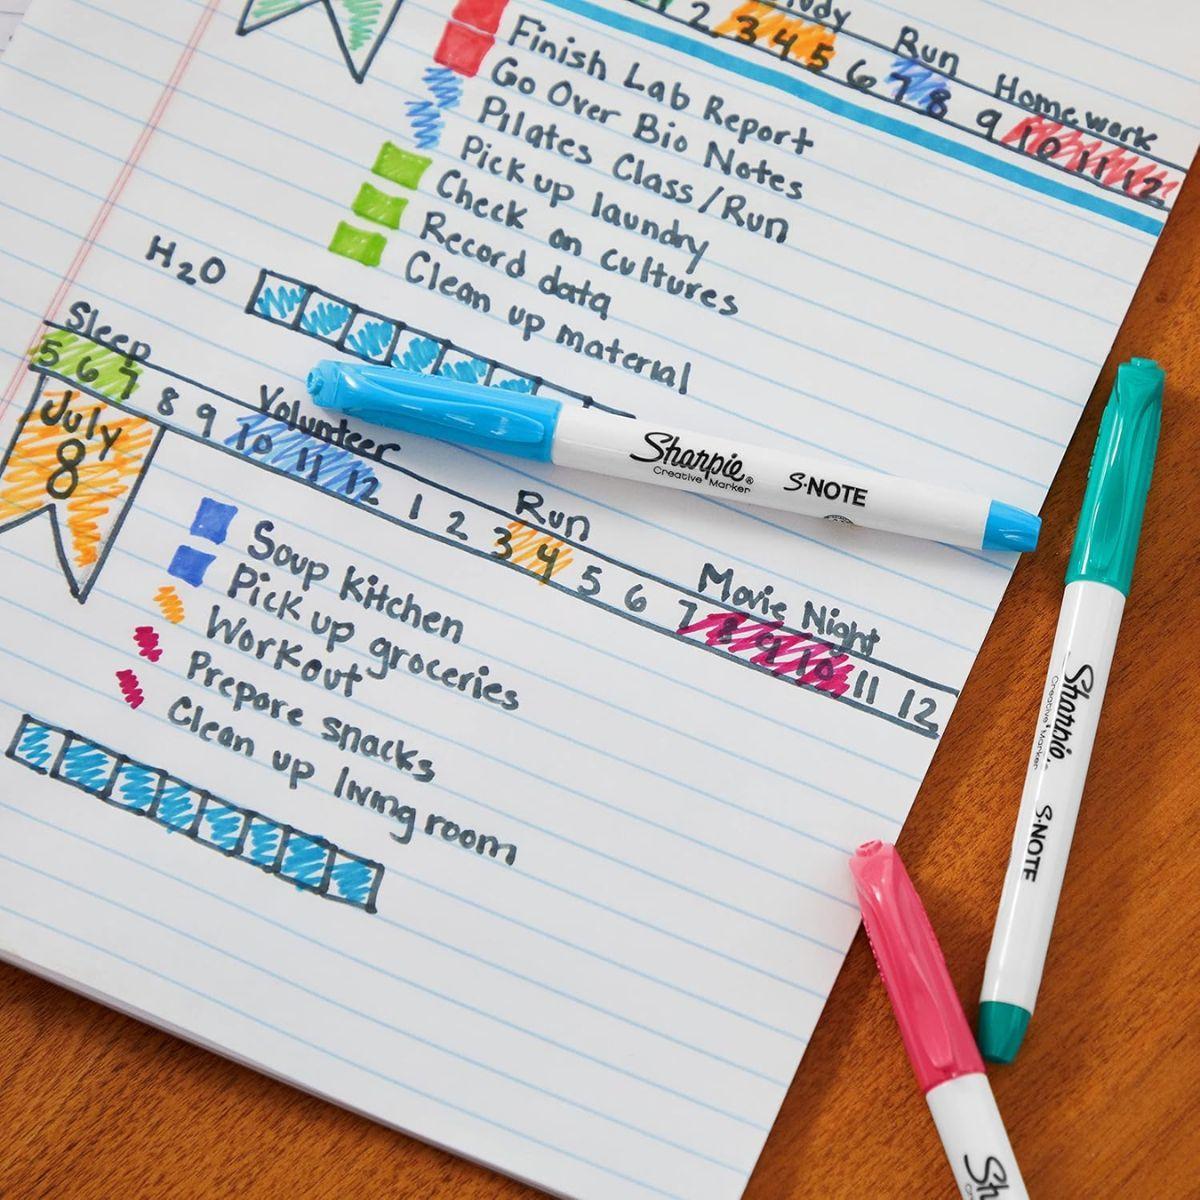 Run
Homework
2 3 4 5 6 7 8 9 10 11 12
Finish Lab Report
Go Over Bio Notes
Pilates Class/Run
Pick up laundry
Check on cultures
Record data
Clean up material
H2O
Sleep
Volunteer
Run
Movie Night
5 6 7 8 9 10 11 12 1 2 3 4 5 6 7 8 9 10 11 12
July
8
Soup Kitchen
Pick up groceries
Workout
Prepare snacks
Clean up living room
Sharpie®
Creative Marker
S·NOTE
Sharpie
Creative Marker
S·NOTE